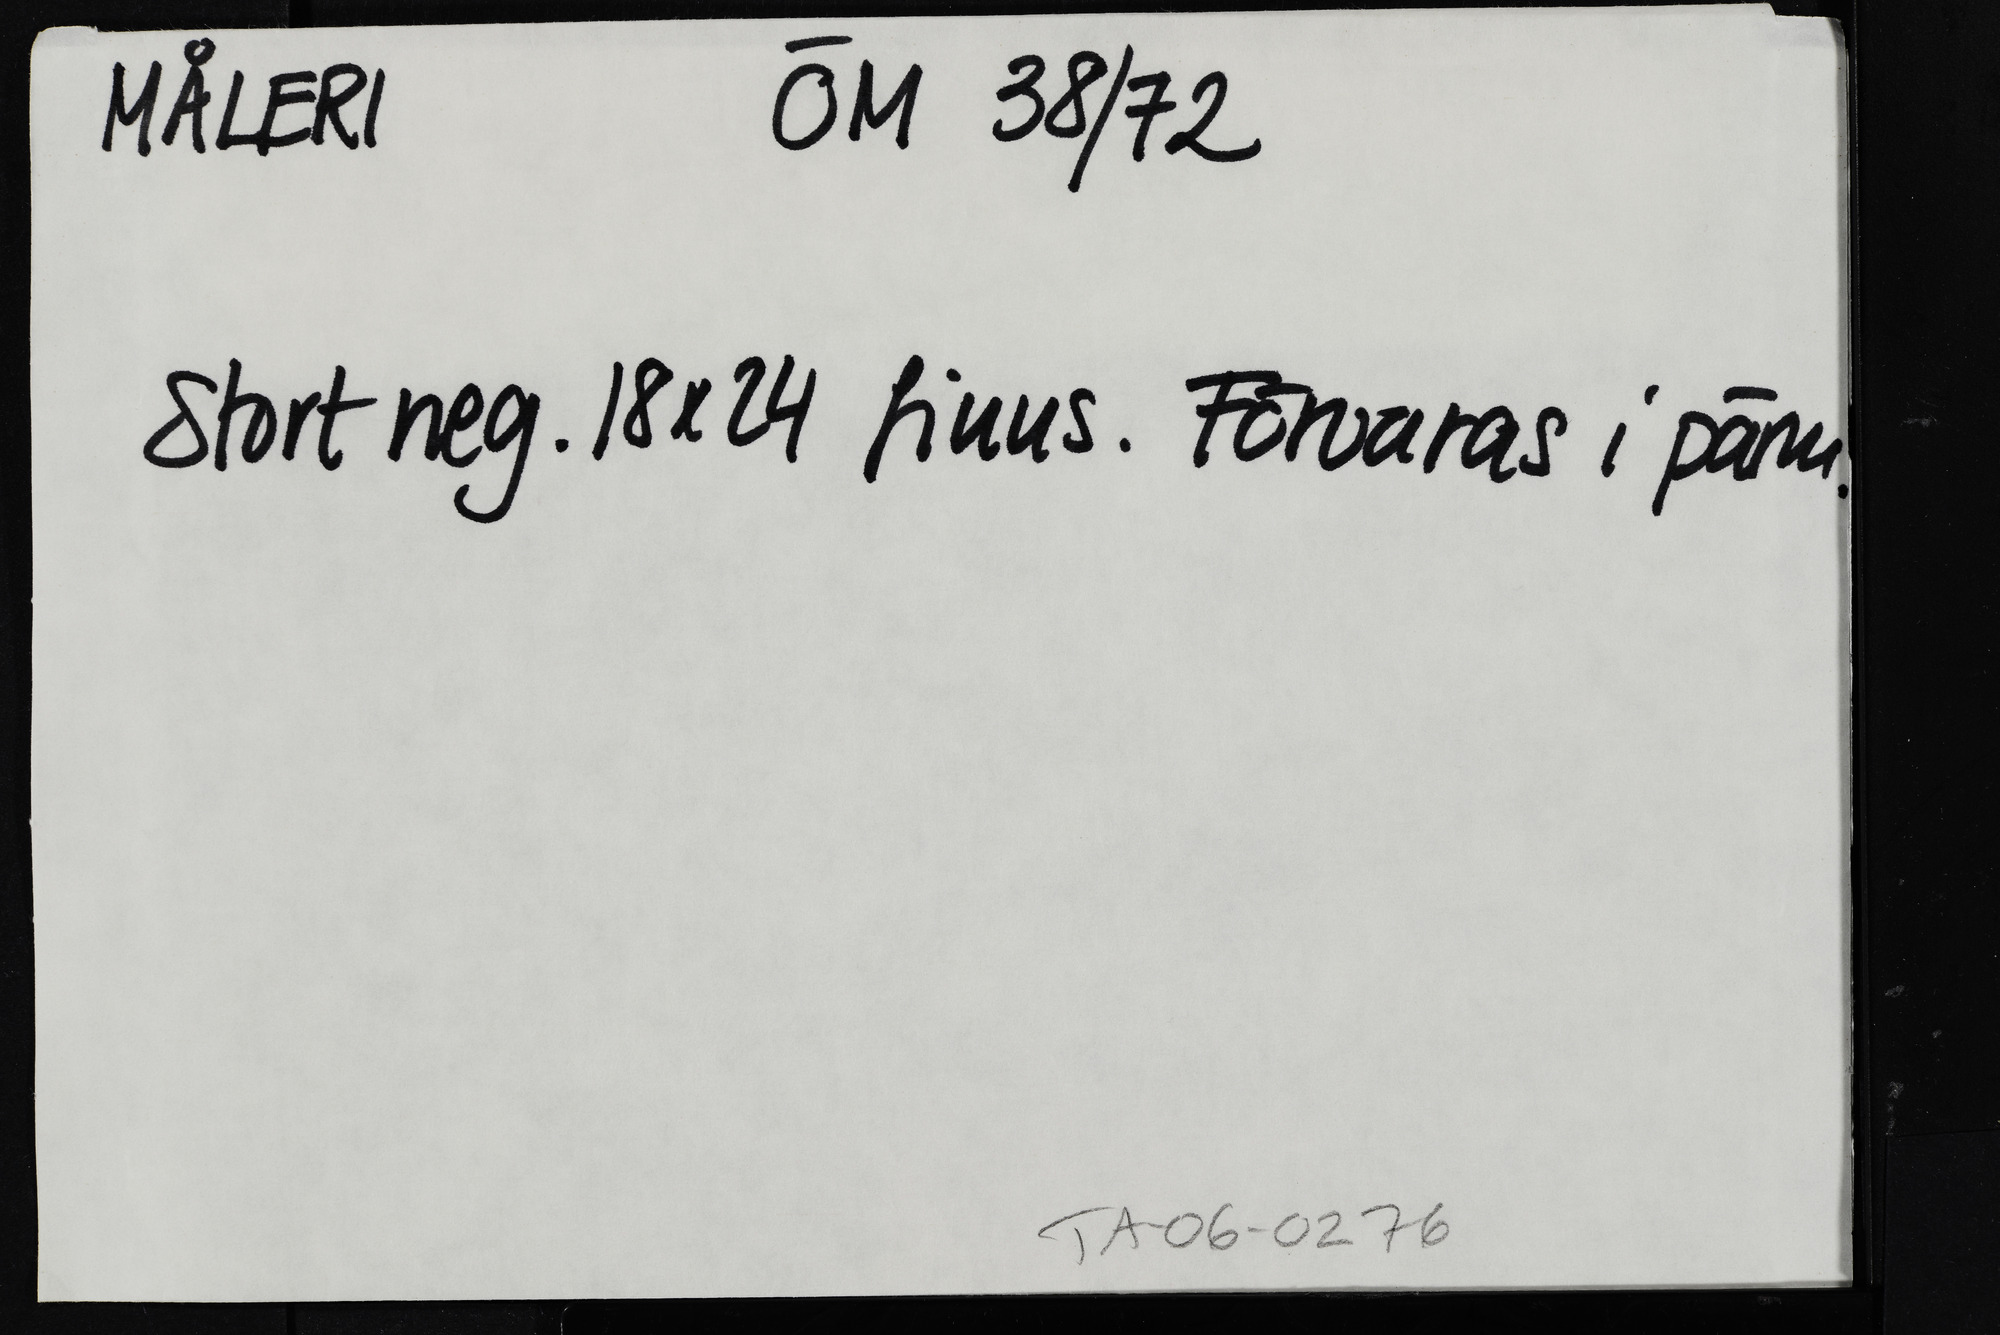 MÅLERI ÖM 38/72
Stort neg. 18x24 finns. Förvaras i pärm.
TA-06-0276